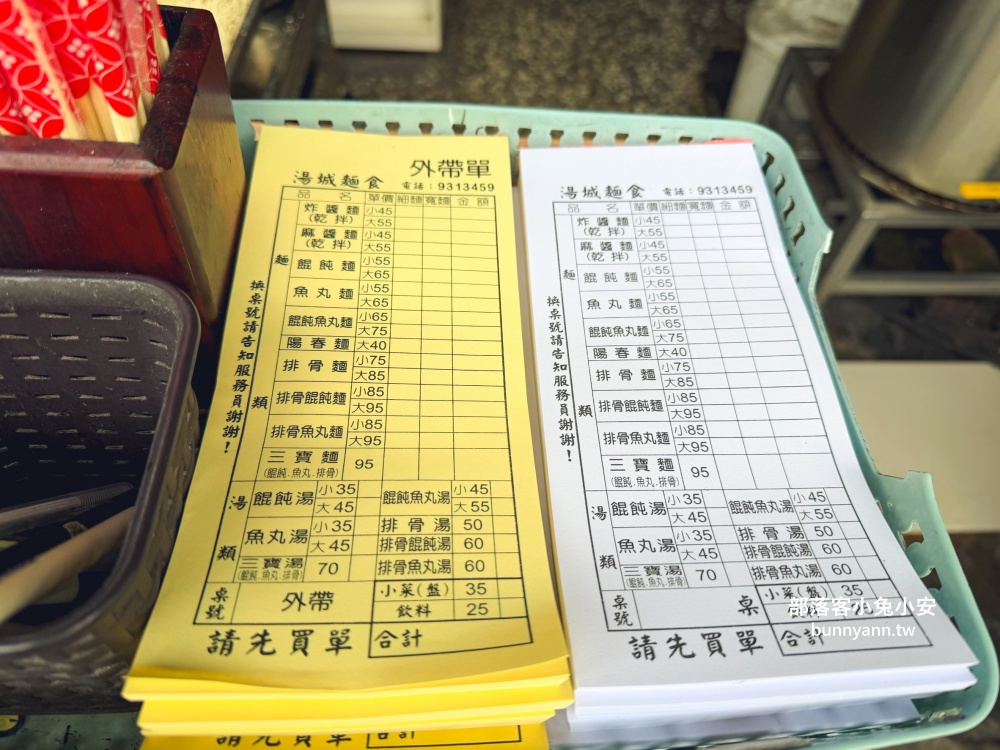 外帶單
湯城麵食 電話：9313459
品 名 單價 細麵 寬麵 金 額
麵 類
炸醬麵 (乾 拌) 小45
大55
麻醬麵 (乾 拌) 小45
大55
餛飩麵 小55
大65
魚丸麵 小55
大65
餛飩魚丸麵 小65
大75
陽春麵 大40
排骨麵 小75
大85
排骨餛飩麵 小85
大95
排骨魚丸麵 小85
大95
三寶麵 95
(餛飩.魚丸.排骨)
湯 類
餛飩湯 小35 餛飩魚丸湯 小45
大45 大55
魚丸湯 小35 排骨湯 50
大45 排骨餛飩湯 60
三寶湯 70 排骨魚丸湯 60
(餛飩.魚丸.排骨)
桌號 外帶 小菜(盤) 35
飲料 25
請先買單 合計
換桌號請告知服務員謝謝！
請先買單 合計
湯城麵食 電話：9313459
品 名 單價 細麵 寬麵 金 額
麵 類
炸醬麵 (乾 拌) 小45
大55
麻醬麵 (乾 拌) 小45
大55
餛飩麵 小55
大65
魚丸麵 小55
大65
餛飩魚丸麵 小65
大75
陽春麵 大40
排骨麵 小75
大85
排骨餛飩麵 小85
大95
排骨魚丸麵 小85
大95
三寶麵 95
(餛飩.魚丸.排骨)
湯 類
餛飩湯 小35 餛飩魚丸湯 小45
大45 大55
魚丸湯 小35 排骨湯 50
大45 排骨餛飩湯 60
三寶湯 70 排骨魚丸湯 60
(餛飩.魚丸.排骨)
桌號 桌 小菜(盤) 35
請先買單 合計
換桌號請告知服務員謝謝！
部落客小兔小安
bunnyann.tw